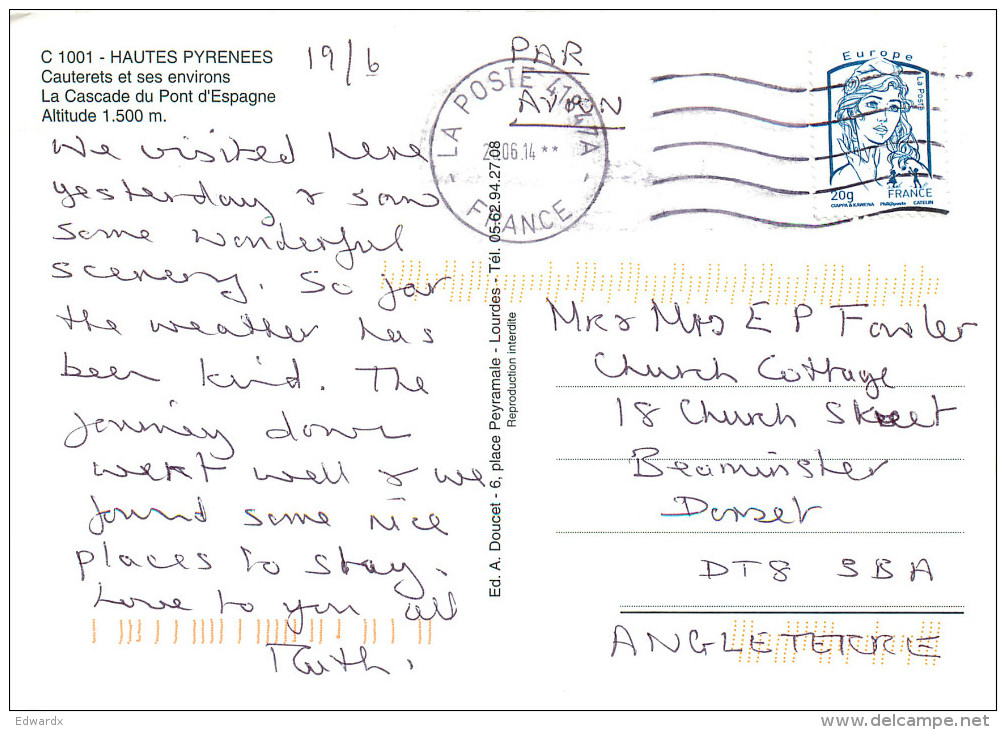 C 1001 - HAUTES PYRENEES
Cauterets et ses environs
La Cascade du Pont d'Espagne
Altitude 1.500 m.
19/6
PAR
AVION
LA POSTE
06.14 **
FRANCE
Europe
La Poste
20g
FRANCE
CIAPPA & KAWENA Phil@poste CATELIN
We visited here
yesterday & saw
some wonderful
scenery. So far
the weather has
been kind. The
journey down
went well & we
found some nice
places to stay.
Love to you all
Ruth.
Ed. A. Doucet - 6, place Peyramale - Lourdes - Tél. 05.62.94.27.08
Reproduction interdite
Mr & Mrs E P Fowler
Church Cottage
18 Church Street
Beaminster
Dorset
DT8 3BA
ANGLETERRE
Edwardx
delcampe.net